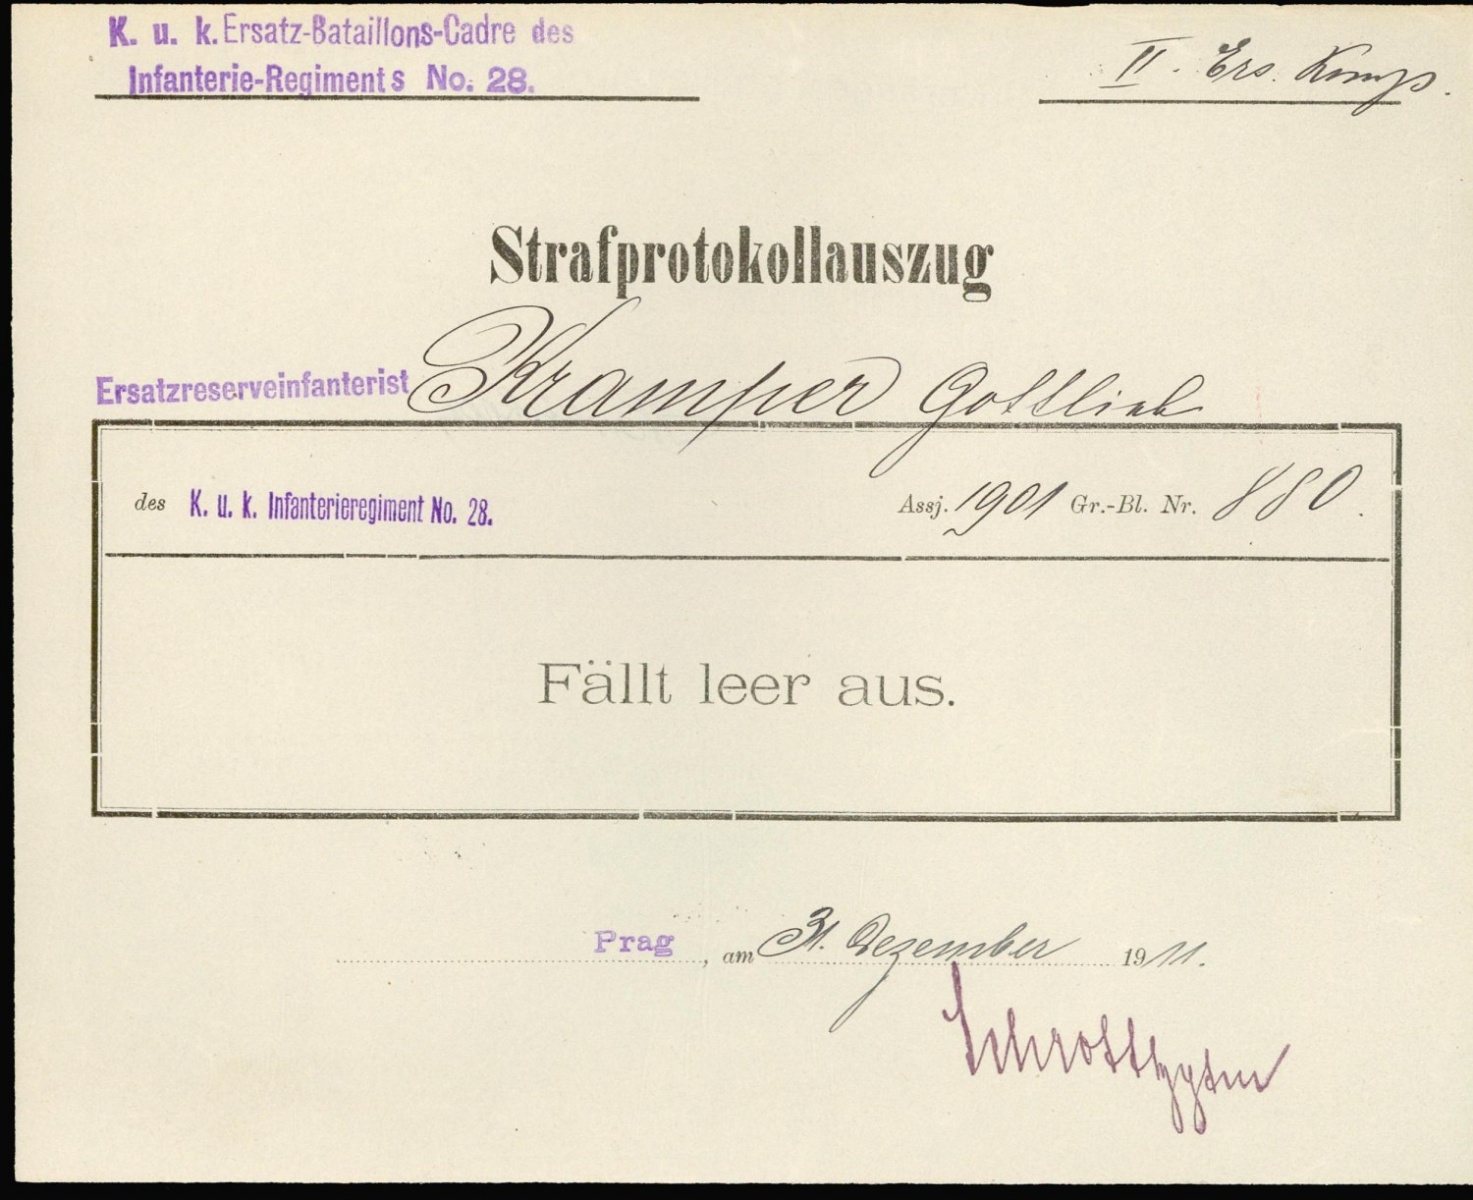 K. u. k. Ersatz-Bataillons-Cadre des
Infanterie-Regiments No. 28.
II. Ers. Komp.
Strafprotokollauszug
Ersatzreserveinfanterist Kramper Gottlieb
des K. u. k. Infanterieregiment No. 28. Assj. 1901 Gr.-Bl. Nr. 880.
Fällt leer aus.
Prag, am 31. Dezember 1911.